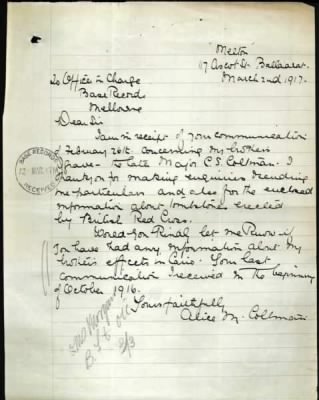 "Melton"
117 Ascot St. Ballaarat.
March 2nd 1917.
To Officer in Charge
Base Record
Melbourne
Dear Sir
I am in receipt of your communication
of February 26th concerning my brothers
grave - the late Major C.S. Coltman. I
thank you for making enquiries & sending
me particulars and also for the enclosed
information about tombstones erected
by British Red Cross.
Would you kindly let me know if
you have had any information about my
brothers effects in Cairo. Your last
communication I received in the beginning
of October 1916.
Yours faithfully
Alice M. Coltman
BASE RECORDS
MAR 1917
RECEIVED